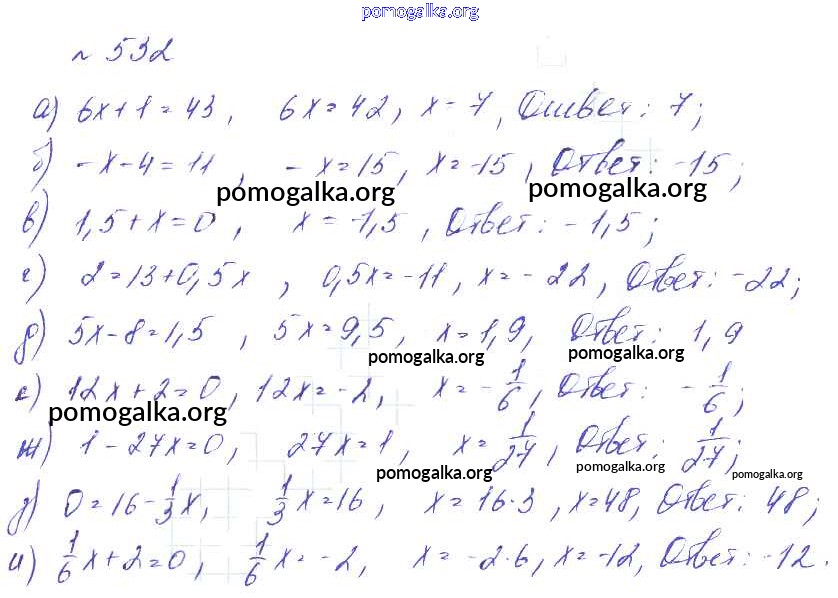 pomogalka.org
№ 532
а) 6x+1=43, 6x=42, x=7, Ответ: 7;
б) -x-4=11, -x=15, x=-15, Ответ: -15;
pomogalka.org pomogalka.org
в) 1,5+x=0, x=-1,5, Ответ: -1,5;
г) 2=13+0,5x, 0,5x=-11, x=-22, Ответ: -22;
д) 5x-8=1,5, 5x=9,5, x=1,9, Ответ: 1,9
pomogalka.org pomogalka.org
е) 12x+2=0, 12x=-2, x=-1/6, Ответ: -1/6;
pomogalka.org
ж) 1-27x=0, 27x=1, x=1/27, Ответ: 1/27;
pomogalka.org pomogalka.org pomogalka.org
з) 0=16-1/3x, 1/3x=16, x=16·3, x=48, Ответ: 48;
и) 1/6x+2=0, 1/6x=-2, x=-2·6, x=-12, Ответ: -12.